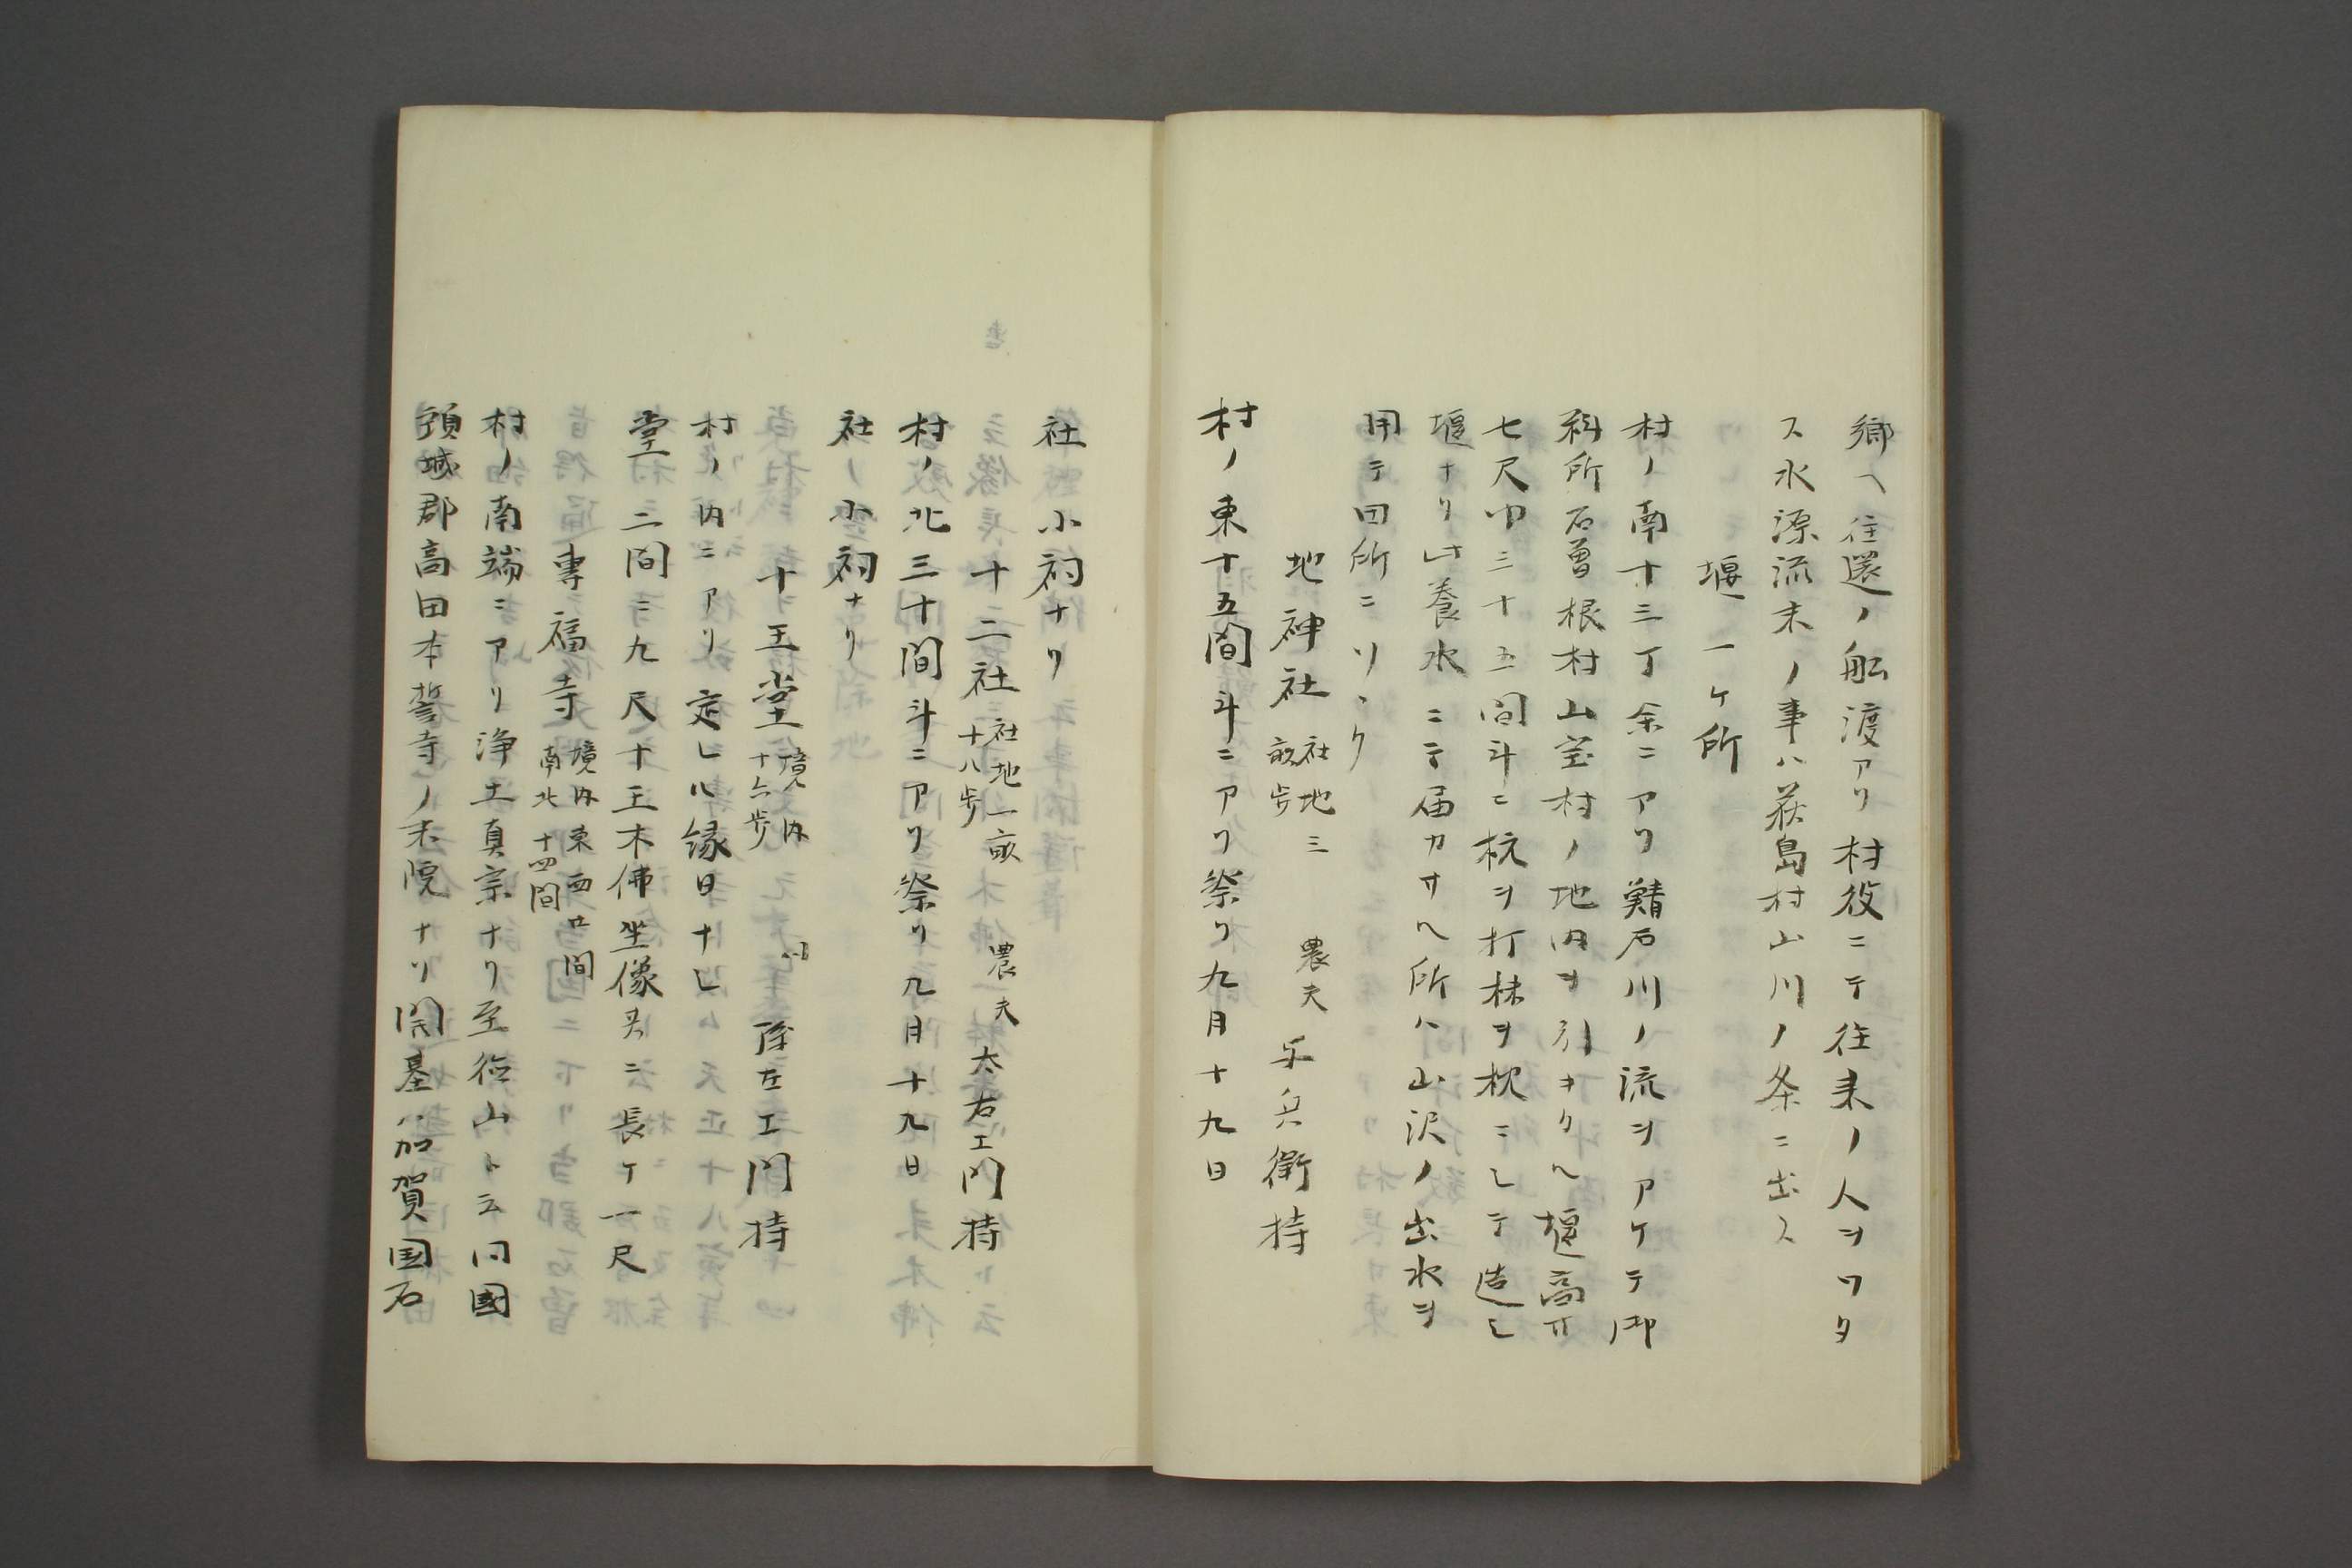 郷ヘ往還ノ舩渡アリ村役ニテ往来ノ人ヲワタ
ス水源流末ノ事ハ荻島村山川ノ条ニ出ス
堰一ケ所
村ノ南十三丁余ニアリ鯖石川ノ流ヲアケテ御
料所石曽根村山室村ノ地内ヲ引キクヘ堰高サ
七尺巾三十五間斗ニ杭ヲ打枺ヲ枕ニシテ造レ
堰ナリ此養水ニテ届カサヘ所ハ山沢ノ出水ヲ
用テ田所ニソヽク
地神社 社地三畝歩 農夫 平兵衛持
村ノ東十五間斗ニアリ祭リ九月十九日
社小祠ナリ
十二社 社地一畝十八歩 農夫 太右エ門持
村ノ北三十間斗ニアリ祭リ九月十九日
社ノ小祠ナリ
十王堂 境内十六歩 同 孫左エ門持
村ノ内ニアリ定レル縁日ナシ
堂二間ニ九尺十王木佛坐像共ニ長ケ一尺
専福寺 境内東西廿間南北十四間
村ノ南端ニアリ浄土真宗ナリ至徳山ト云同國
頚城郡高田本誓寺ノ末院ナリ開基ハ加賀国石